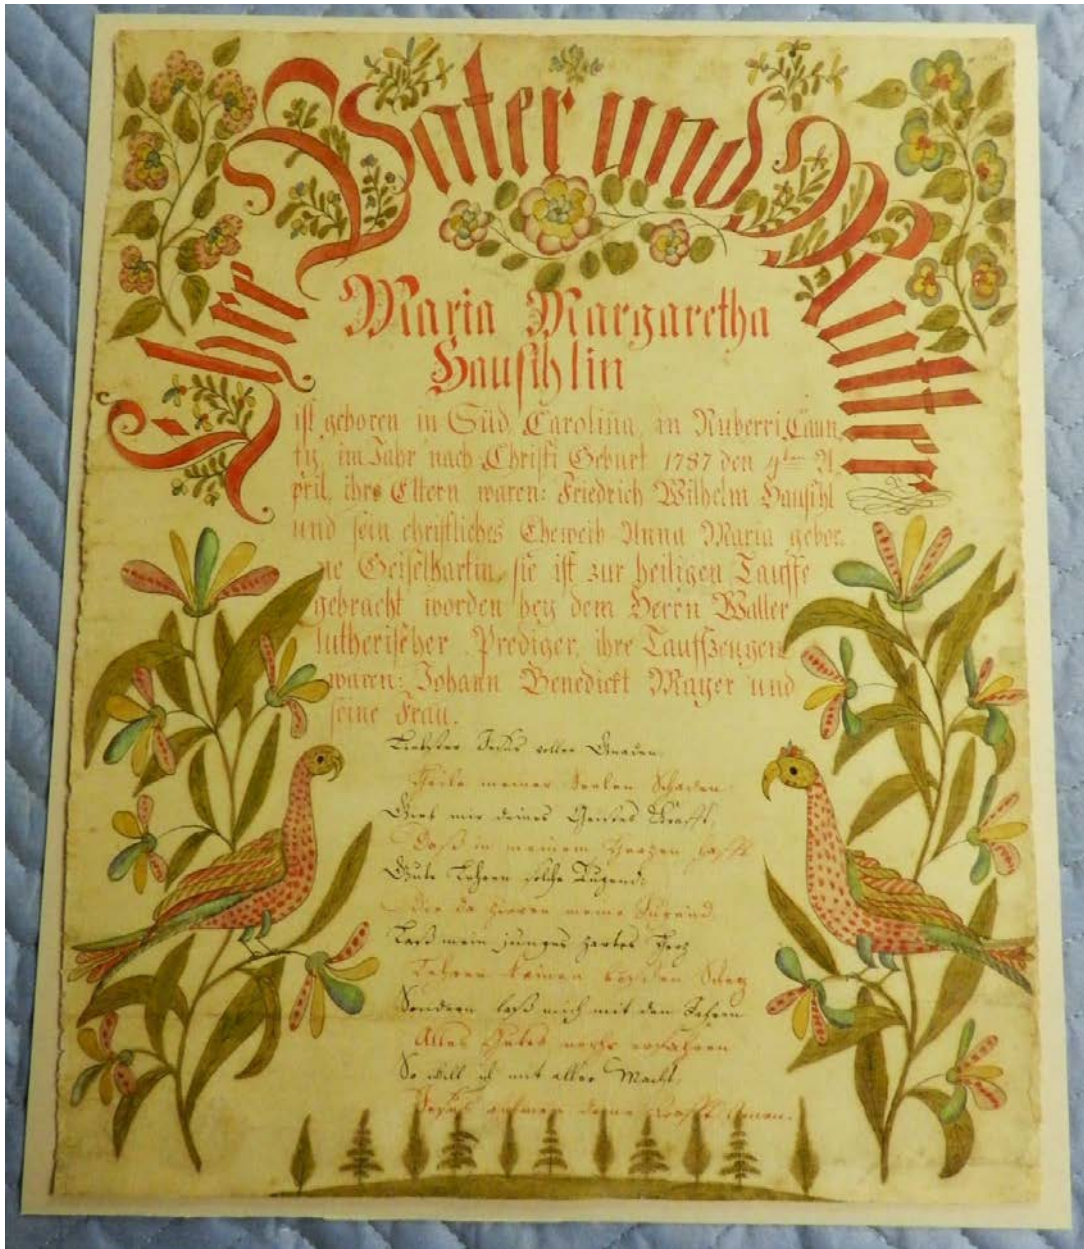 Ihr Vater und Mutter
Maria Margaretha
Hausihlin
ist geboren in Süd Carolina, in Nuberri Caun,
ty, im Jahr nach Christi Geburt 1787 den 9ten A,
pril, ihre Eltern waren: Friedrich Wilhelm Hausihl
und sein christliches Eheweib Anna Maria gebor,
ne Geiselhartin, sie ist zur heiligen Tauffe
gebracht worden bey dem Herrn Waller
lutherischer Prediger, ihre Taufszeugen
waren: Johann Benedickt Mayer und
seine Frau.
Liebster Jesus voller Gnaden,
Heile meiner Seelen Schaden
Gieb mir deines Geistes Krafft,
Daß in meinem Herzen hafft
Gute Lehren solche Tugend,
Die da zieren meine Jugend,
Laß mein junges zartes Herz
Lehren keinen bösen
Sondern laß mich mit den Jahren
Alles Gutes mehr erfahren
So will ich mit aller Macht,
Jesus deine Amen.